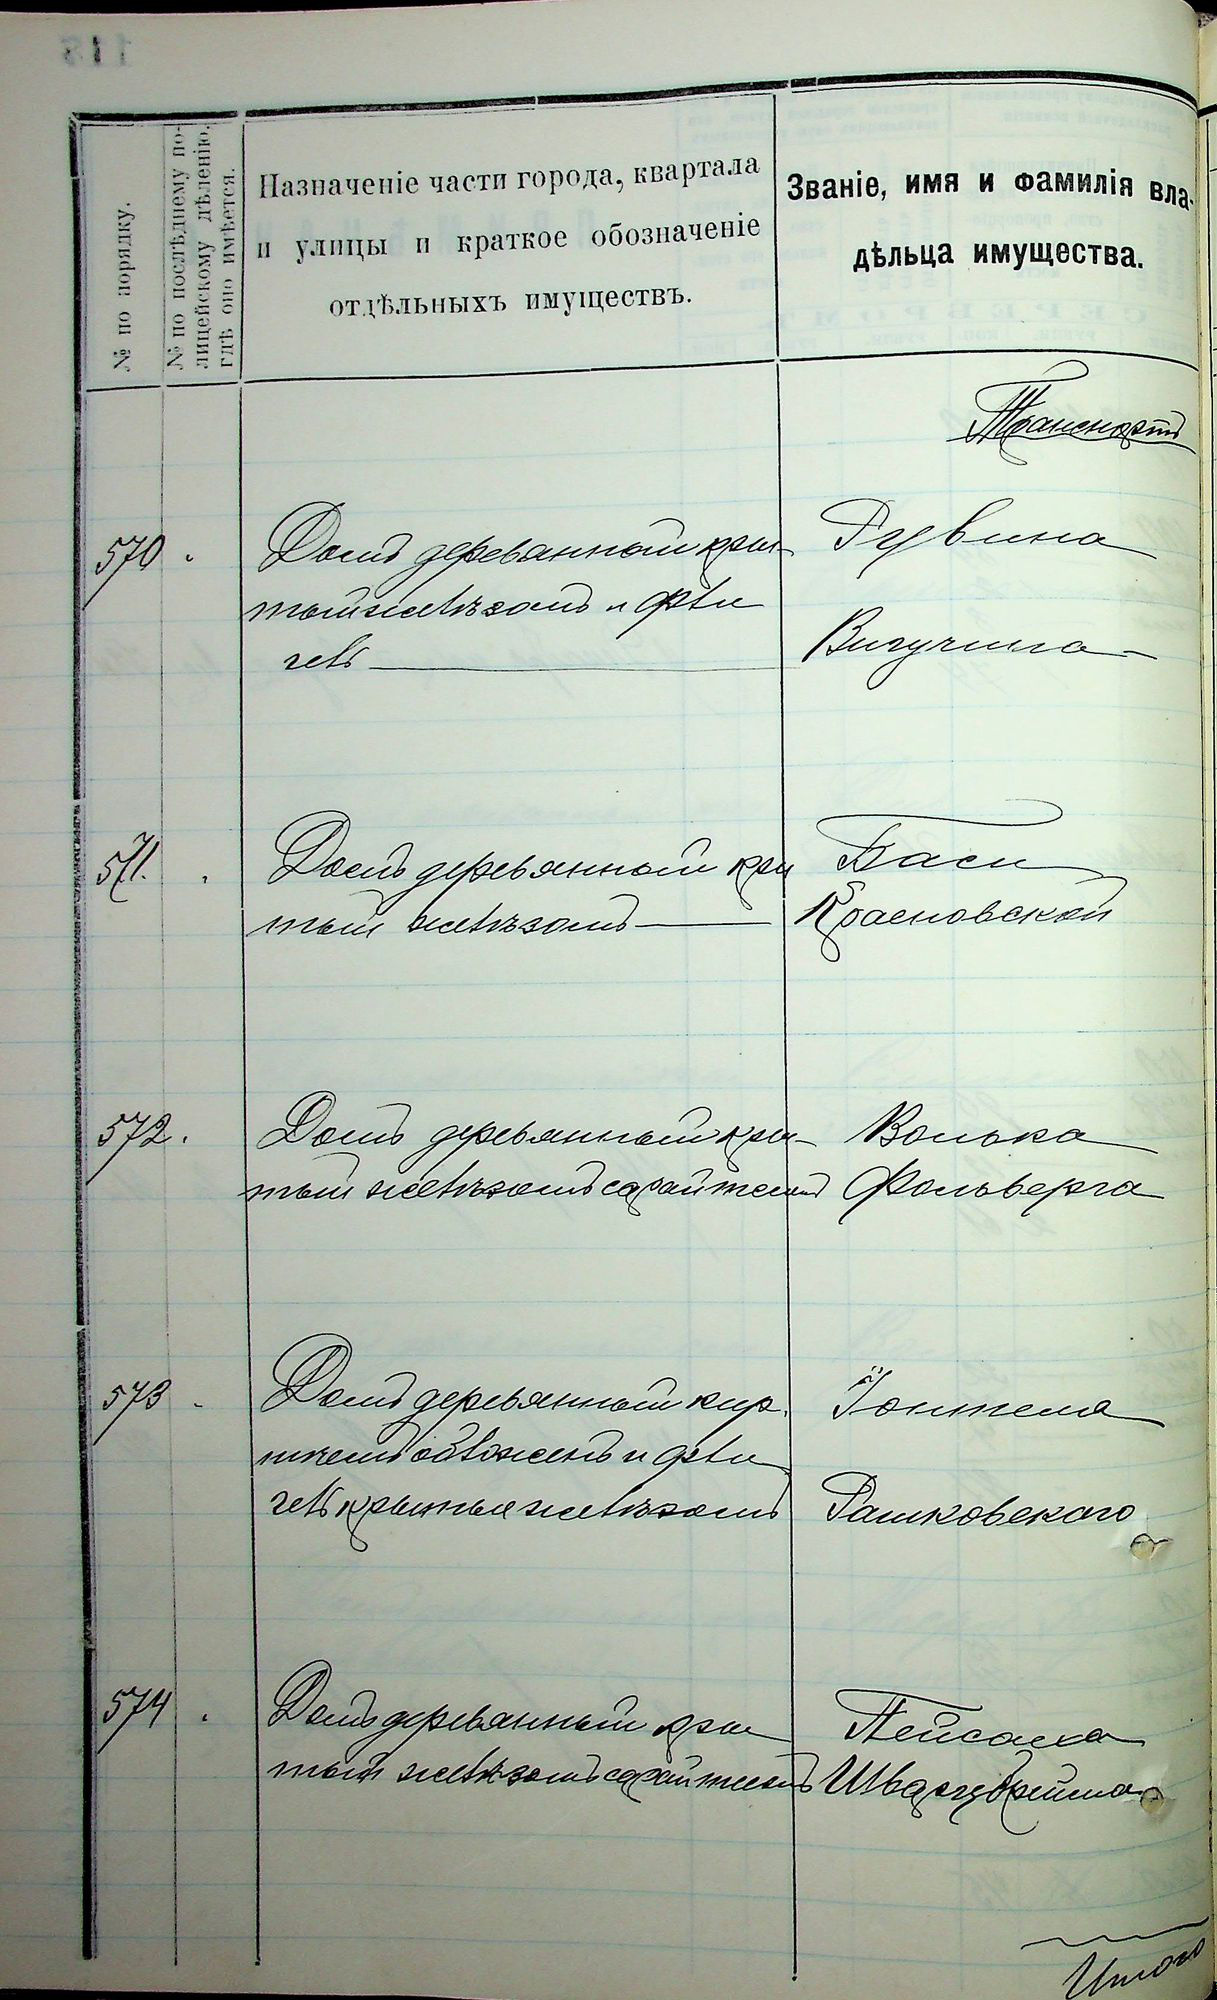 № по порядку.
№ по послѣднему по-
лицейскому дѣленію,
гдѣ оно имѣется.
Назначеніе части города, квартала
и улицы и краткое обозначеніе
отдѣльныхъ имуществъ.
Званіе, имя и фамилія вла-
дѣльца имущества.
Транспортъ
570
Домъ деревянный кры-
тый желѣзомъ и фли
гель
Рувина
Вигучина
571.
Домъ деревянный кры
тый желѣзомъ
Баси
Красновской
572.
Домъ деревянный кры-
тый желѣзомъ сарай тѣмъ
Волька
Фольберга
573
Домъ деревянный кир.
пичемъ обложенъ и фли
гель крытые желѣзомъ
Іонтеля
Рашковскаго
574
Домъ деревянный кры
тый желѣзомъ сарай
Пейсаха
Шварцбейма
Итого